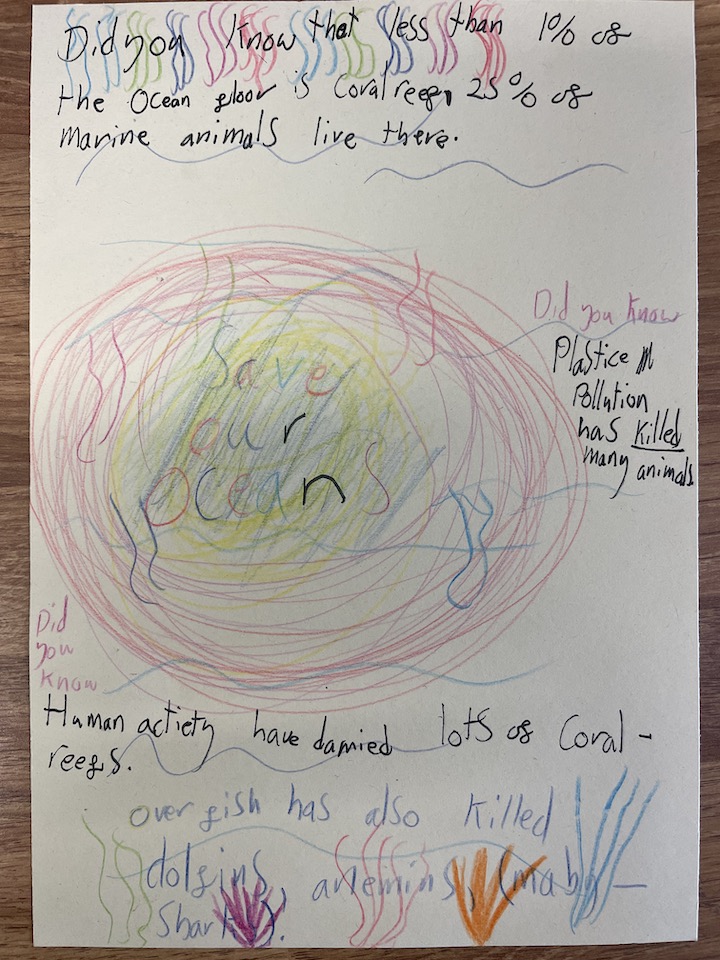 Did you know that less than 1% of
the Ocean floor is Coral reef, 25% of
marine animals live there.
Save
our
oceans
Did you know
Plastice
Pollution
has killed
many animals
Did
you
know
Human actiety have damied lots of Coral-
reefs.
over fish has also killed
dolfins,
Sharks).